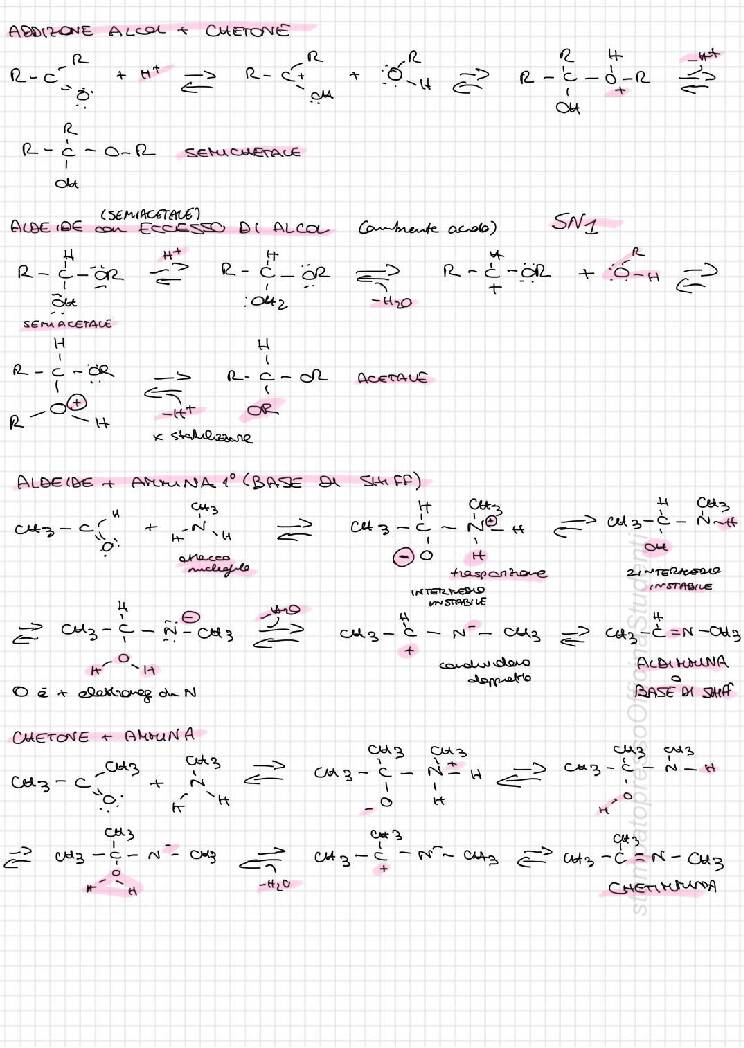 ADDIZIONE ALCOL + CHETONE
R - C R O + H+ ⇌ R - C+ R OH + O R H ⇌ R - C R OH - O+ H - R -H+ ⇌
R - C R OH - O - R SEMICHETALE
(SEMIACETALE)
ALDEIDE con ECCESSO DI ALCOL (ambiente acido) SN1
R - C H OH - OR H+ ⇌ R - C H OH2 - OR ⇌ -H2O R - C H + - OR + O R - H ⇌
SEMIACETALE
R - C H - OR R - O + H ⇌ -H+ R - C H - OR OR ACETALE
x stabilizzare
ALDEIDE + AMMINA 1° (BASE DI SHIFF)
CH3 - C H O + CH3 N H H ⇌ CH3 - C H - O - N+ CH3 H - H ⇌ CH3 - C H OH - N CH3 - H
attacco nucleofilo
trasposizione
INTERMEDIO INSTABILE
2 INTERMEDIO INSTABILE
⇌ CH3 - C H O H H - N - - CH3 -H2O ⇌ CH3 - C H + - N- - CH3 ⇌ CH3 - C H = N - CH3
O è + elettroneg da N
condividono doppietto
ALDIMMINA
O
BASE DI SHIFF
CHETONE + AMMINA
CH3 - C CH3 O + CH3 N H H ⇌ CH3 - C CH3 O - - N+ CH3 H - H ⇌ CH3 - C CH3 O H - N CH3 - H
⇌ CH3 - C CH3 O H H - N- - CH3 ⇌ -H2O CH3 - C CH3 + - N- - CH3 ⇌ CH3 - C CH3 = N - CH3
CHETIMMINA